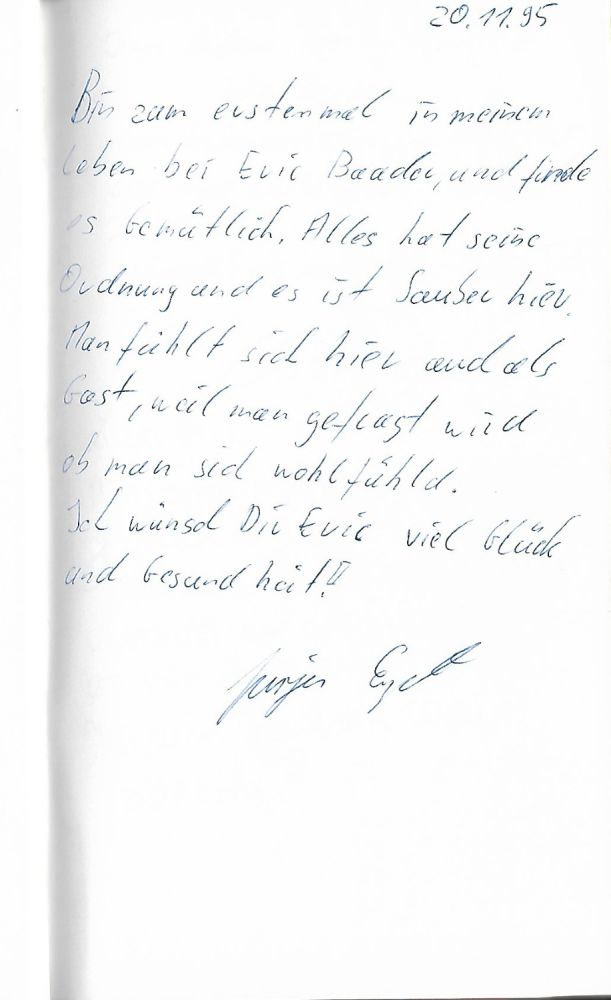 20.11.95
Bin zum erstenmal in meinem
Leben bei Eric Baader, und finde
es Gemütlich. Alles hat seine
Ordnung und es ist Sauber hier.
Man fühlt sich hier auch als
Gast, weil man gefragt wird
ob man sich wohlfühld.
Ich wünsch Dir Eric viel Glück
und Gesundheit!!